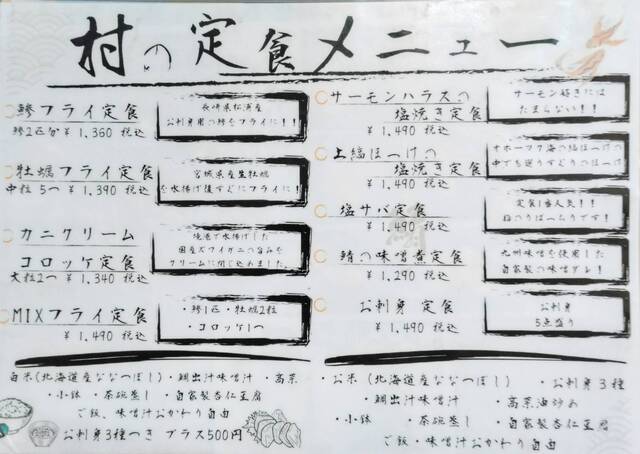 村の定食メニュー
鯵フライ定食
鯵2匹分 ¥1,360 税込
長崎県松浦産
お刺身用の鯵をフライに!!
牡蠣フライ定食
中粒 5つ ¥1,390 税込
宮城県産生牡蠣
を水揚げ後すぐにフライに!
カニクリーム
コロッケ定食
大粒2つ ¥1,340 税込
境港で水揚げした
国産ズワイガニの旨みを
クリームに閉じ込めました。
MIXフライ定食
¥1,490 税込
・鯵1匹・牡蠣2粒
・コロッケ1つ
白米(北海道産ななつぼし)・鯛出汁味噌汁・高菜
・小鉢・茶碗蒸し・自家製杏仁豆腐
ご飯、味噌汁おかわり自由
お刺身3種つき プラス500円
サーモンハラスの
塩焼き定食
¥1,490 税込
サーモン好きには
たまらない!!
上縞ほっけの
塩焼き定食
¥1,490 税込
オホーツク海の縞ほっけの
中でも選りすぐりのほっけ!
塩サバ定食
¥1,490 税込
定食1番人気!!
脂のりばっちりです!
鯖の味噌煮定食
¥1,290 税込
九州味噌を使用した
自家製の味噌ダレ!
お刺身 定食
¥1,490 税込
お刺身
5点盛り
・お米(北海道産ななつぼし)・お刺身3種
・鯛出汁味噌汁・高菜油炒め
・小鉢・茶碗蒸し・自家製杏仁豆腐
ご飯・味噌汁おかわり自由